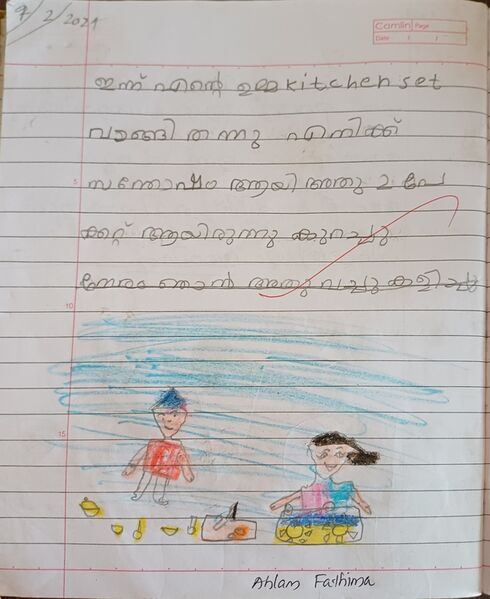 9/2/2024
Camlin Page
Date / /
ഇന്ന് എന്റെ ഉമ്മ kitchen set
വാങ്ങി തന്നു എനിക്ക്
സന്തോഷം ആയി അതു 2 പേ
ക്കറ്റ് ആയിരുന്നു കുറച്ചു
നേരം ഞാൻ അതു വച്ചു കളിച്ചു
5
10
15
Ahlam Fathima